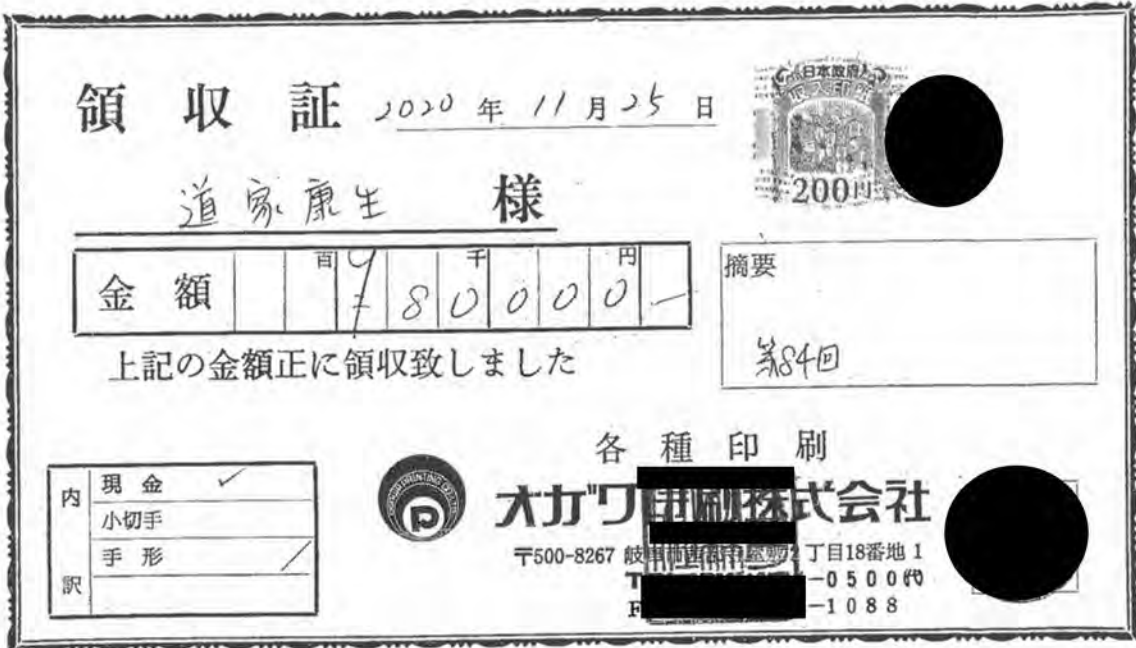 領収証 2020年11月25日
日本政府
200円
道家康生 様
金額 百 千 円
¥80000-
摘要
第84回
上記の金額正に領収致しました
内訳
現金 ✓
小切手
手形
各種印刷
オガワ印刷株式会社
〒500-8267 岐 2丁目18番地1
-0500代
-1088